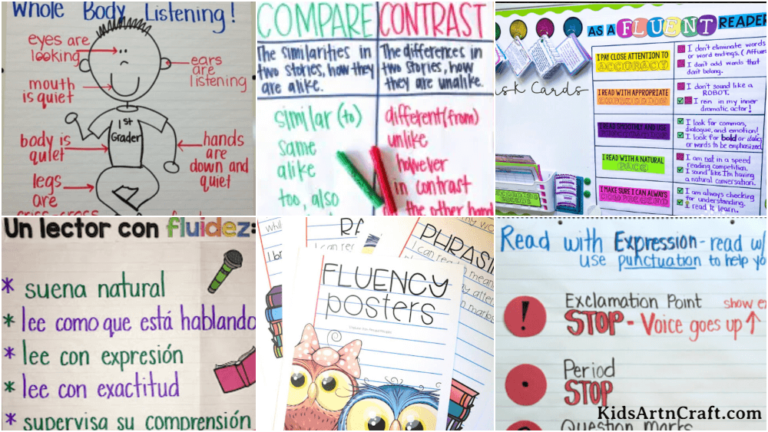 Whole Body Listening!
eyes are
looking
ears
are
listening
mouth
is quiet
1st
Grader
body is
quiet
hands
are
down and
quiet
legs
are
COMPARE
The similarities in
two stories, how they
are alike.
similar (to)
same
alike
too, also
CONTRAST
The differences in
two stories, how
they are unalike.
different (from)
unlike
however
in contrast
the other hand
AS A FLUENT READER
sk Cards
I PAY CLOSE ATTENTION TO
ACCURACY
I don't eliminate words
or word endings.
I don't add words that
don't belong.
I READ WITH APPROPRIATE
I don't sound like a
ROBOT.
I am in my inner
dramatic actor!
I look for commas,
dialogue, and emotion!
I look for bold or
words to be emphasized.
I READ WITH A NATURAL
PACE
I am not in a speed
reading competition.
I sound like I'm having
a natural conversation.
I MAKE SURE I CAN ALWAYS
I am always checking
for understanding.
I read to learn.
Un lector con fluidez:
* suena natural
* lee como que está hablando
* lee con expresión
* lee con exactitud
* supervisa su comprensión
PHRASIN
FLUENCY
posters
Read with Expression - read w/
use punctuation to help yo
! Exclamation Point
show ex
STOP - Voice goes up ↑
. Period
STOP
Question Marks
KidsArtnCraft.com